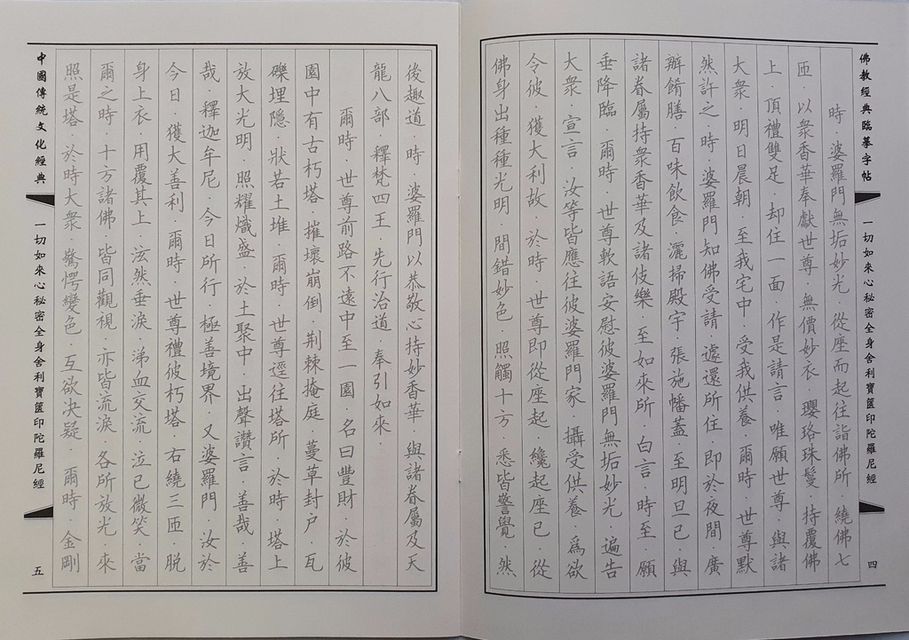 佛教經典臨摹字帖
一切如來心秘密全身舍利寶篋印陀羅尼經
四
時·婆羅門無垢妙光·從座而起往詣佛所·繞佛七
匝·以衆香華奉獻世尊·無價妙衣·瓔珞珠鬘·持覆佛
上·頂禮雙足·却住一面·作是請言·唯願世尊·與諸
大衆·明日晨朝·至我宅中·受我供養·爾時·世尊默
然許之·時·婆羅門知佛受請·遽還所住·即於夜間·廣
辦餚膳·百味飲食·灑掃殿宇·張施幡蓋·至明旦已·與
諸眷屬持衆香華及諸伎樂·至如來所·白言·時至·願
垂降臨·爾時·世尊軟語安慰彼婆羅門無垢妙光·遍告
大衆·宣言·汝等皆應往彼婆羅門家·攝受供養·爲欲
令彼·獲大利故·於時·世尊即從座起·纔起座已·從
佛身出種種光明·間錯妙色·照觸十方·悉皆警覺·然
後趣道·時·婆羅門以恭敬心持妙香華·與諸眷屬及天
龍八部·釋梵四王·先行治道·奉引如來·
爾時·世尊前路不遠中至一園·名曰豐財·於彼
園中有古朽塔·摧壞崩倒·荆棘掩庭·蔓草封户·瓦
礫埋隱·狀若土堆·爾時·世尊逕往塔所·於時·塔上
放大光明·照耀熾盛·於土聚中·出聲讚言·善哉·善
哉·釋迦牟尼·今日所行·極善境界·又婆羅門·汝於
今日·獲大善利·爾時·世尊禮彼朽塔·右繞三匝·脱
身上衣·用覆其上·泫然垂淚·涕血交流·泣已微笑·當
爾之時·十方諸佛·皆同觀視·亦皆流淚·各所放光·來
照是塔·於時大衆·驚愕變色·互欲决疑·爾時·金剛
中國傳統文化經典
一切如來心秘密全身舍利寶篋印陀羅尼經
五